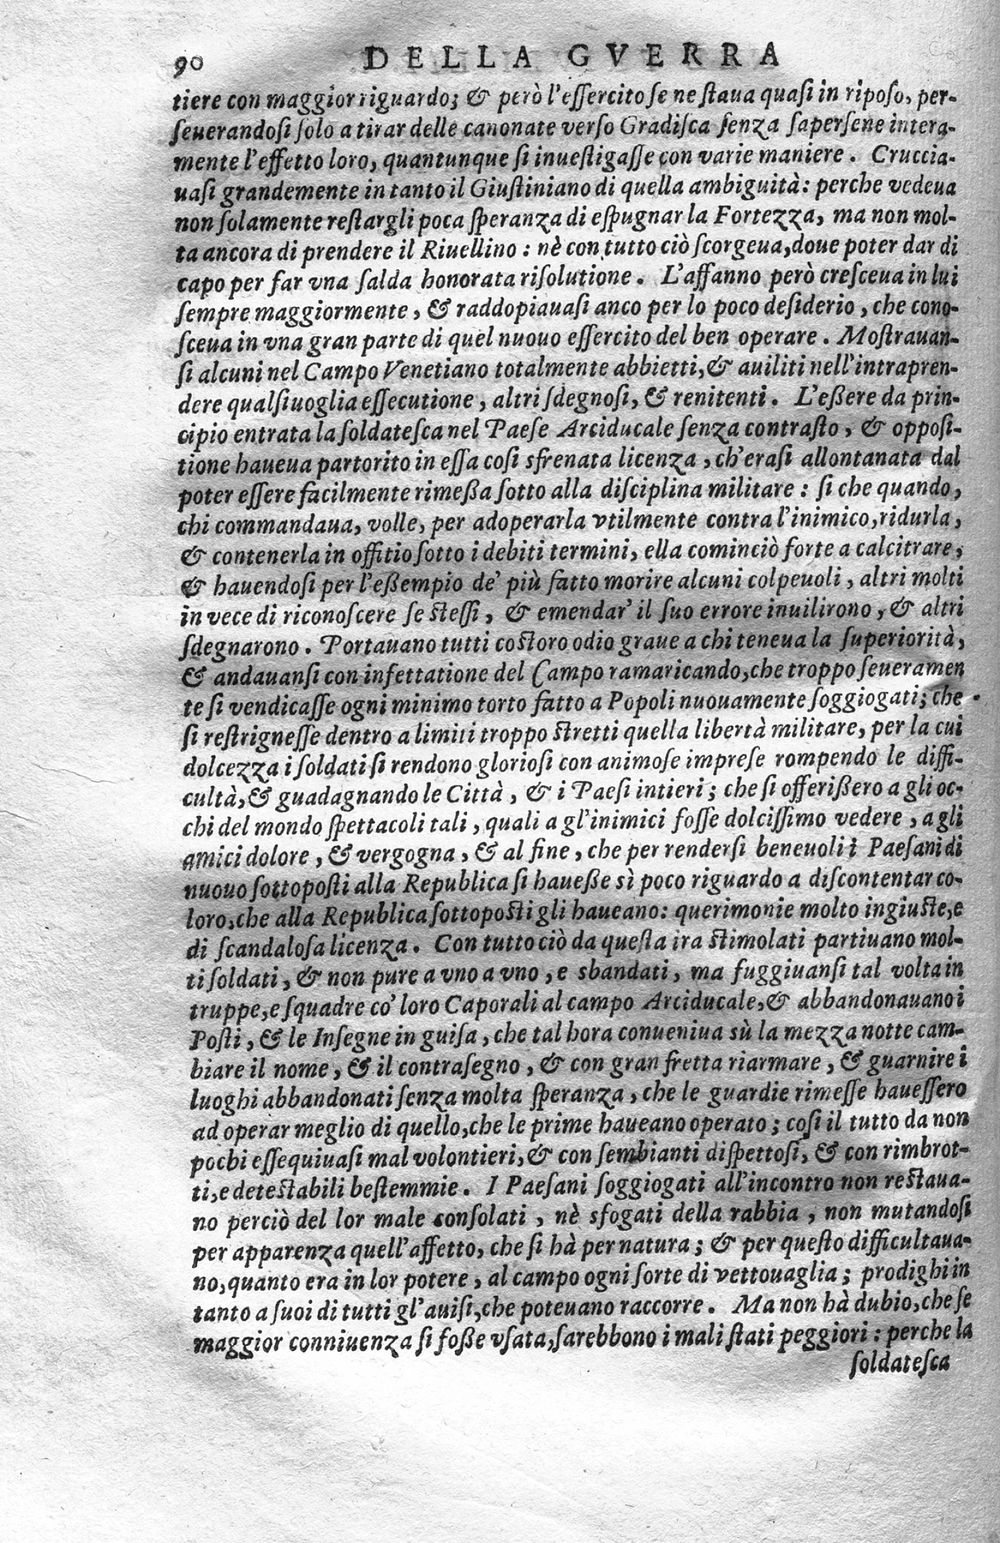 90 DELLA GVERRA
tiere con maggior riguardo; & però l'eſſercito ſe ne ſtaua quaſi in ripoſo, per-
ſeuerandoſi ſolo a tirar delle canonate verſo Gradiſca ſenza ſaperſene intera-
mente l'effetto loro, quantunque ſi inueſtigaſſe con varie maniere. Cruccia-
uaſi grandemente in tanto il Giuſtiniano di quella ambiguità: perche vedeua
non ſolamente reſtargli poca ſperanza di eſpugnar la Fortezza, ma non mol-
ta ancora di prendere il Riuellino: nè con tutto ciò ſcorgeua, doue poter dar di
capo per far vna ſalda honorata riſolutione. L'affanno però creſceua in lui
ſempre maggiormente, & raddopiauaſi anco per lo poco deſiderio, che cono-
ſceua in vna gran parte di quel nuouo eſſercito del ben operare. Moſtrauan-
ſi alcuni nel Campo Venetiano totalmente abbietti, & auiliti nell'intrapren-
dere qualſiuoglia eſſecutione, altri ſdegnoſi, & renitenti. L'eßere da prin-
cipio entrata la ſoldateſca nel Paeſe Arciducale ſenza contraſto, & oppoſi-
tione haueua partorito in eſſa coſi sfrenata licenza, ch'eraſi allontanata dal
poter eſſere facilmente rimeßa ſotto alla diſciplina militare: ſi che quando,
chi commandaua, volle, per adoperarla vtilmente contra l'inimico, ridurla,
& contenerla in offitio ſotto i debiti termini, ella cominciò forte a calcitrare,
& hauendoſi per l'eßempio de' più fatto morire alcuni colpeuoli, altri molti
in vece di riconoſcere ſe ſteſſi, & emendar' il ſuo errore inuilirono, & altri
ſdegnarono. Portauano tutti coſtoro odio graue a chi teneua la ſuperiorità,
& andauanſi con infettatione del Campo ramaricando, che troppo ſeueramen
te ſi vendicaſſe ogni minimo torto fatto a Popoli nuouamente ſoggiogati; che
ſi reſtrigneſſe dentro a limiti troppo ſtretti quella libertà militare, per la cui
dolcezza i ſoldati ſi rendono glorioſi con animoſe impreſe rompendo le diffi-
cultà, & guadagnando le Città, & i Paeſi intieri; che ſi offerißero a gli oc-
chi del mondo ſpettacoli tali, quali a gl'inimici foſſe dolciſſimo vedere, a gli
amici dolore, & vergogna, & al fine, che per renderſi beneuoli i Paeſani di
nuouo ſottopoſti alla Republica ſi haueße sì poco riguardo a diſcontentar co-
loro, che alla Republica ſottopoſti gli haueano: querimonie molto ingiuſte, e
di ſcandaloſa licenza. Con tutto ciò da queſta ira ſtimolati partiuano mol-
ti ſoldati, & non pure a vno a vno, e sbandati, ma fuggiuanſi tal volta in
truppe, e ſquadre co' loro Caporali al campo Arciducale, & abbandonauano i
Poſti, & le Inſegne in guiſa, che tal hora conueniua sù la mezza notte cam-
biare il nome, & il contraſegno, & con gran fretta riarmare, & guarnire i
luoghi abbandonati ſenza molta ſperanza, che le guardie rimeſſe haueſſero
ad operar meglio di quello, che le prime haueano operato; coſi il tutto da non
pochi eſſequiuaſi mal volontieri, & con ſembianti diſpettoſi, & con rimbrot-
ti, e deteſtabili beſtemmie. I Paeſani ſoggiogati all'incontro non reſtaua-
no perciò del lor male conſolati, nè sfogati della rabbia, non mutandoſi
per apparenza quell'affetto, che ſi hà per natura; & per queſto difficultaua-
no, quanto era in lor potere, al campo ogni ſorte di vettouaglia; prodighi in
tanto a ſuoi di tutti gl'auiſi, che poteuano raccorre. Ma non hà dubio, che ſe
maggior conniuenza ſi foße vſata, ſarebbono i mali ſtati peggiori: perche la
ſoldateſca